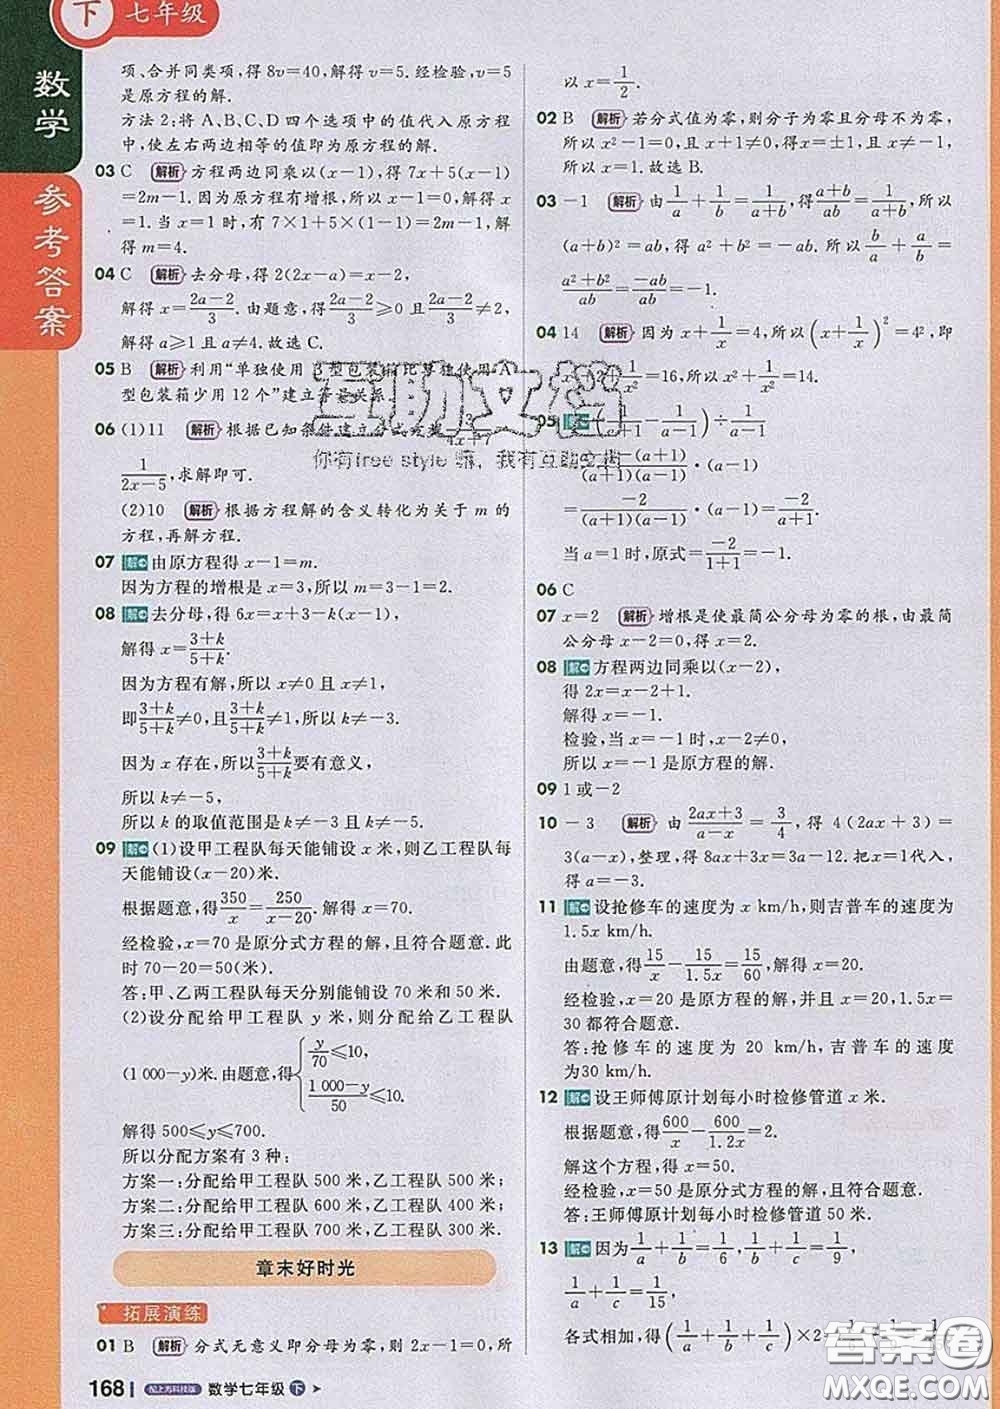 下 七年级
数学
参考答案
项、合并同类项,得 8v=40,解得 v=5. 经检验,v=5
是原方程的解.
方法 2:将 A、B、C、D 四个选项中的值代入原方程
中,使左右两边相等的值即为原方程的解.
03 C 解析 方程两边同乘以(x-1),得 7x+5(x-1)
=2m-1. 因为原方程有增根,所以 x-1=0,解得 x
=1. 当 x=1 时,有 7×1+5×(1-1)=2m-1,解
得 m=4.
04 C 解析 去分母,得 2(2x-a)=x-2,
解得 x=(2a-2)/3. 由题意,得(2a-2)/3≥0 且(2a-2)/3≠2,
解得 a≥1 且 a≠4. 故选 C.
05 B 解析 利用“单独使用 B 型包装箱比单独使用 A
型包装箱少用 12 个”建立等量关系.
06 (1)11 解析 根据已知条件建立分式方程 3/(4x+7)
1/(2x-5),求解即可.
(2)10 解析 根据方程解的含义转化为关于 m 的
方程,再解方程.
07 解 由原方程得 x-1=m.
因为方程的增根是 x=3,所以 m=3-1=2.
08 解 去分母,得 6x=x+3-k(x-1),
解得 x=(3+k)/(5+k).
因为方程有解,所以 x≠0 且 x≠1,
即(3+k)/(5+k)≠0,且(3+k)/(5+k)≠1,所以 k≠-3.
因为 x 存在,所以(3+k)/(5+k)要有意义,
所以 k≠-5,
所以 k 的取值范围是 k≠-3 且 k≠-5.
09 解 (1)设甲工程队每天能铺设 x 米,则乙工程队每
天能铺设(x-20)米.
根据题意,得350/x=250/(x-20). 解得 x=70.
经检验,x=70 是原分式方程的解,且符合题意. 此
时 70-20=50(米).
答:甲、乙两工程队每天分别能铺设 70 米和 50 米.
(2)设分配给甲工程队 y 米,则分配给乙工程队
(1 000-y)米. 由题意,得{y/70≤10, (1 000-y)/50≤10,
解得 500≤y≤700.
所以分配方案有 3 种:
方案一:分配给甲工程队 500 米,乙工程队 500 米;
方案二:分配给甲工程队 600 米,乙工程队 400 米;
方案三:分配给甲工程队 700 米,乙工程队 300 米.
章末好时光
拓展演练
01 B 解析 分式无意义即分母为零,则 2x-1=0,所
168 配上海科技版 数学七年级 下
以 x=1/2.
02 B 解析 若分式值为零,则分子为零且分母不为零,
所以 x²-1=0,且 x+1≠0,得 x=±1,且 x≠-1,
所以 x=1. 故选 B.
03 -1 解析 由1/a+1/b=1/(a+b),得(a+b)/ab=1/(a+b),所以
(a+b)²=ab,得 a²+b²=-ab. 所以b/a+a/b=
(a²+b²)/ab=-ab/ab=-1.
04 14 解析 因为 x+1/x=4,所以(x+1/x)²=4²,即
1/x²=16,所以 x²+1/x²=14.
05 解 (1/(a+1)-1/(a-1))÷1/(a-1)
=(a-1-(a+1))/((a+1)(a-1))·(a-1)
=-2/((a+1)(a-1))·(a-1)=-2/(a+1).
当 a=1 时,原式=-2/(1+1)=-1.
06 C
07 x=2 解析 增根是使最简公分母为零的根,由最简
公分母 x-2=0,得 x=2.
08 解 方程两边同乘以(x-2),
得 2x=x-2+1.
解得 x=-1.
检验,当 x=-1时,x-2≠0,
所以 x=-1 是原方程的解.
09 1 或-2
10 -3 解析 由(2ax+3)/(a-x)=3/4,得 4(2ax+3)=
3(a-x),整理,得 8ax+3x=3a-12. 把 x=1代入,
得 a=-3.
11 解 设抢修车的速度为 x km/h,则吉普车的速度为
1.5x km/h.
由题意,得15/x-15/1.5x=15/60,解得 x=20.
经检验,x=20 是原方程的解,并且 x=20,1.5x=
30 都符合题意.
答:抢修车的速度为 20 km/h,吉普车的速度
为30 km/h.
12 解 设王师傅原计划每小时检修管道 x 米.
根据题意,得600/x-600/1.2x=2.
解这个方程,得 x=50.
经检验,x=50 是原分式方程的解,且符合题意.
答:王师傅原计划每小时检修管道 50 米.
13 解 因为1/a+1/b=1/6,1/b+1/c=1/9,
1/a+1/c=1/15,
各式相加,得(1/a+1/b+1/c)×2=
互助文档
你有free style 嘛,我有互助文档
答案圈
MXQE.COM